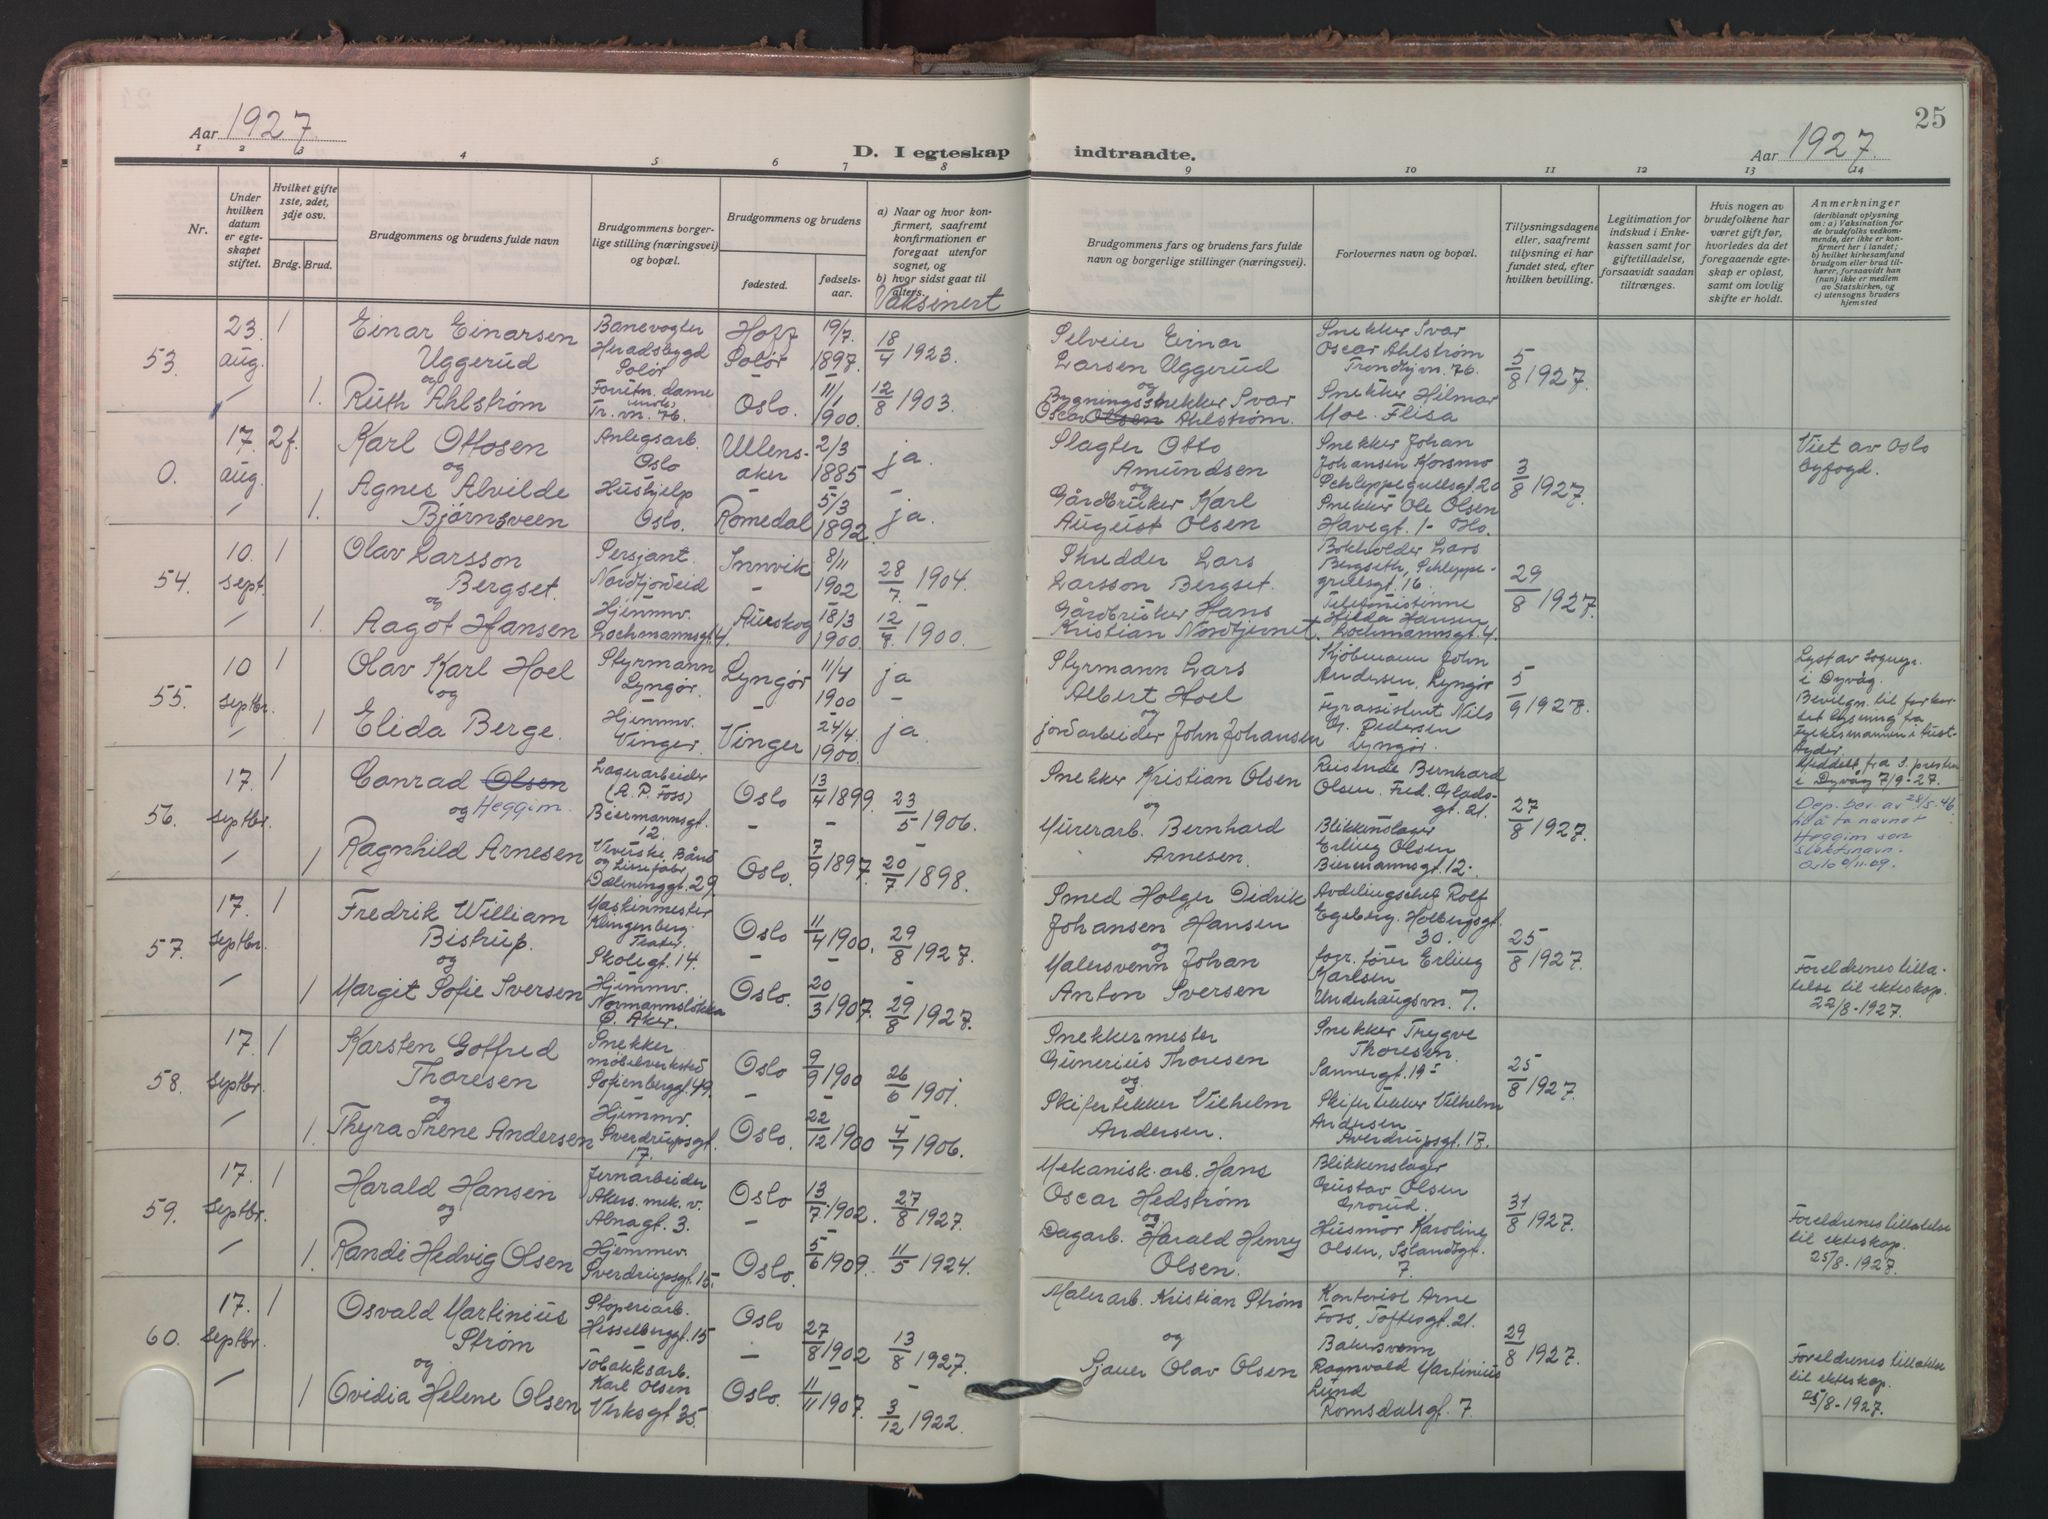 25
Aar 1927.
D. I egteskap
indtraadte.
Aar 1927.
1 2 3 4 5 6 7 8 9 10 11 12 13 14
Nr.
Under hvilken datum er egteskapet stiftet.
Hvilket gifte 1ste, 2det, 3dje osv.
Brdg. Brud.
Brudgommens og brudens fulde navn
Brudgommens borgerlige stilling (næringsvei) og bopæl.
Brudgommens og brudens
fødested.
fødselsaar.
a) Naar og hvor konfirmert, saafremt konfirmationen er foregaat utenfor sognet, og
b) hvor sidst gaat til alters.
Vaksinert
Brudgommens fars og brudens fars fulde navn og borgerlige stillinger (næringsvei).
Forlovernes navn og bopæl.
Tillysningsdagene eller, saafremt tillysning ei har fundet sted, efter hvilken bevilling.
Legitimation for indskud i Enkekassen samt for giftetilladelse, forsaavidt saadan tiltrænges.
Hvis nogen av brudefolkene har været gift før, hvorledes da det foregaaende egteskap er opløst, samt om lovlig skifte er holdt.
Anmerkninger
(deriblandt oplysning om: a) Vaksination for de brudefolks vedkommende, der ikke er konfirmert her i landet; b) hvilket kirkesamfund brudgom eller brud tilhører, forsaavidt han (hun) ikke er medlem av Statskirken, og c) utensogns bruders hjemsted
53. 23. aug. 1
Einar Einarsen Uggerud
Banevogter Heradsbygd Solør
Hoff Solør
19/7. 1897.
18/4 1923.
Selveier Einar Larsen Uggerud
Snekker Ivar Oscar Ahlstrøm Trondhjvn. 76.
5/8 1927.
og
1. Ruth Ahlstrøm
Forretn. dame Tr. vn. 76.
Oslo.
11/1 1900.
12/8 1903.
og
Bygningssnekker Ivar Oscar Olsen Ahlstrøm.
Snekker Hilmar Moe Flisa
0. 17. aug. 2 f.
Karl Ottosen
Anlegsarb. Oslo
Ullensaker
2/3 1885
ja.
Slagter Otto Amundsen
Snekker Johan Johansen Korsmo Schleppegrellsgt. 20
3/8 1927.
Viet av Oslo byfogd.
og
1. Agnes Alvilde Bjørnsveen
Hushjelp Oslo.
Romedal
5/3 1892.
ja.
og
Gårdbruker Karl August Olsen
Snekker Ole Olsen Havegt. 1 - Oslo.
54. 10. sept. 1
Olav Larsson Bergset.
Sersjant. Nordfjordeid
Innvik
8/11 1902
28/7. 1904
Skredder Lars Larsson Bergset.
Bokholder Lars Bergseth, Schleppegrellsgt. 16.
29/8 1927.
og
1. Aagot Hansen
Hjemmv. Lochmannsgt. 4.
Aurskog
18/3 1900.
12/7 1900.
Gårdbruker Hans Kristian Nordtjernet.
Telefonistinne Hilda Hansen Lochmannsgt. 4.
55. 10 septbr. 1
Olav Karl Hoel
Styrmann Lyngør.
Lyngør
11/4 1900
ja
Styrmann Lars Albert Hoel
Kjøbmann John Andersen, Lyngør
5/9 1927.
Lyst av Sognepr. i Dyvåg.
Bevilgn. til forkortet lysning fra Fylkesmannen i Aust-Agder.
Meddelt fra S. presten i Dyvåg 7/9-27.
og
1 Elida Berge.
Hjemmv. Vinger.
Vinger
24/4. 1900.
ja.
og
jordarbeider John Johansen
Fyrassistent Nils Pedersen Lyngør.
56. 17. septbr. 1
Conrad Olsen
Heggim.
Lagerarbeider (A. P. Foss) Beiermannsgt. 12.
Oslo
13/4 1899.
23/5 1906.
Snekker Kristian Olsen
Reisende Bernhard Olsen. Fred. Gladsgt. 21.
27/8 1927.
Dep. bev av 28/5. 46. til å ta navnet Heggim som slektsnavn.
og
1 Ragnhild Arnesen
Dælenenggt. 29.
Oslo.
7/9 1897.
20/7 1898.
og
Murerarb. Bernhard Arnesen.
Blikkenslager Erling Olsen Biermannsgt. 12.
57. 17. septbr. 1
Fredrik William Bistrup.
Maskinmester Klingenberg Teater. Skolegt. 14.
Oslo
11/4 1900.
29/8 1927.
Smed Holger Didrik Johansen Hansen
Avdelingschef Rolf Egeberg. Holbergsgt. 30.
25/8 1927.
og
1 Margit Sofie Iversen
Hjemmv. Normannsløkka Ø. Aker.
Oslo.
20/3 1907.
29/8 1927.
og
Malersvenn Johan Anton Iversen
Erling Karlsen Underhaugsvn. 7.
Foreldrenes tillatelse til ekteskap. 22/8-1927.
58. 17. septbr. 1
Karsten Gotfred Thoresen
Snekker møbelverksted Sofienberggt. 49.
Oslo
9/9 1900
26/6 1901.
Snekkermester Gunerius Thoresen
Snekker Trygve Thoresen. Sannergt. 19 I
25/8 1927.
og
1. Thyra Irene Andersen
Hjemmv. Sverdrupsgt. 17.
Oslo.
22/12 1900
4/7 1906.
og
Skifertekker Vilhelm Andersen.
Skifertekker Vilhelm Andersen Sverdrupsgt. 17.
59. 17. septbr. 1
Harald Hansen
Jernarbeider Akers. mek. v. Abnagt. 3.
Oslo
13/7. 1902.
27/8 1927.
Mekanisk. arb. Hans Oscar Hedstrøm
Blikkenslager Gustav Olsen Grorud.
31/8 1927.
og
1. Randi Hedvig Olsen
Hjemmev. Sverdrupsgt. 15.
Oslo.
5/6 1909.
11/5 1924.
og
Dagarb. Harald Henry Olsen.
Husmor Karoline Olsen, Islandsgt. 7.
Foreldrenes tillatelse til ekteskap. 25/8-1927.
60. 17. septbr. 1
Osvald Martinius Strøm
Støperiarb. Hesselberggt. 15
Oslo
27/8 1902
13/8 1927.
Malerarb. Kristian Strøm
Kontorist Arne Foss, Toftesgt. 21.
29/8 1927.
og
1 Ovidia Helene Olsen
Tobakksarb. Karl Olsen Verksgt. 35.
Oslo.
11/11 1907.
3/12 1922.
og
Sjauer Olav Olsen
Bakersvenn Ragnvald Martinius Lund Romsdalsgt. 7.
Foreldrenes tillatelse til ekteskap. 25/8-1927.